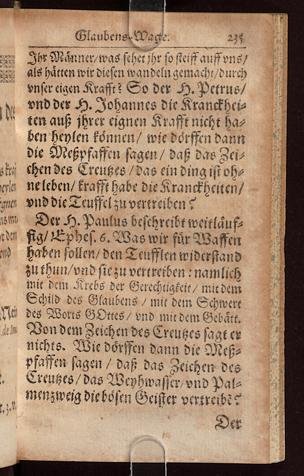 Glaubens-Wage. 235
Jhr Männer/was sehet jhr so steiff auff vns/
als hätten wir diesen wandeln gemacht/durch
vnser eigen Krafft? So der H. Petrus/
vnd der H. Johannes die Kranckhei-
ten auß jhrer eignen Krafft nicht ha-
ben heylen können/ wie dörffen dann
die Meßpfaffen sagen/ daß das Zei-
chen des Creutzes/ das ein ding ist oh-
ne leben/ krafft habe die Kranckheiten/
vnd die Teuffel zu vertreiben?
Der H. Paulus beschreibt weitläuf-
fig/ Ephes. 6. Was wir für Waffen
haben sollen/ den Teufflen widerstand
zu thun/ vnd sie zu vertreiben: namlich
mit dem Krebs der Gerechtigkeit/ mit dem
Schild des Glaubens/ mit dem Schwert
des Worts GOttes/ vnd mit dem Gebätt.
Von dem Zeichen des Creutzes sagt er
nichts. Wie dörffen dann die Meß-
pfaffen sagen/ daß das Zeichen des
Creutzes/ das Weyhwasser/ vnd Pal-
menzweig die bösen Geister vertreibe?
Der